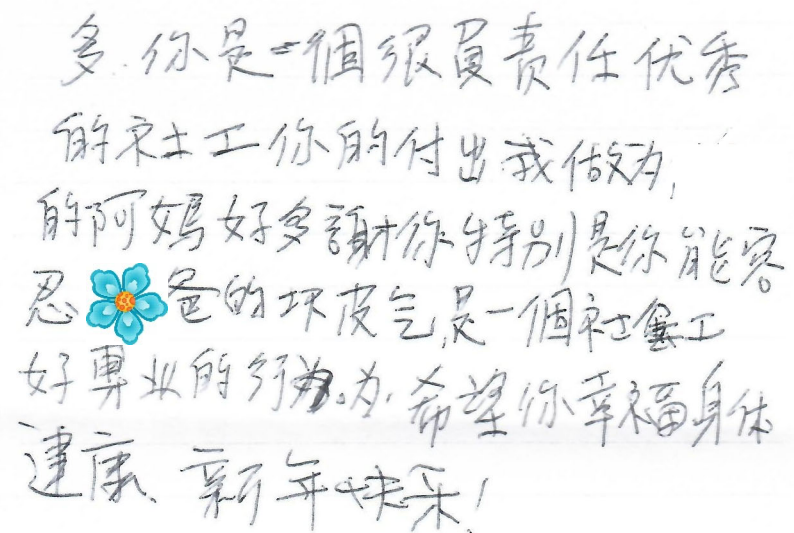 多.你是一個很負責任优秀
的社工你的付出我做为,
的阿媽好多謝你特別是你能容
忍爸的坏皮气,是一個社工
好專业的行为.为.希望你幸福身体
建康、新年快乐!